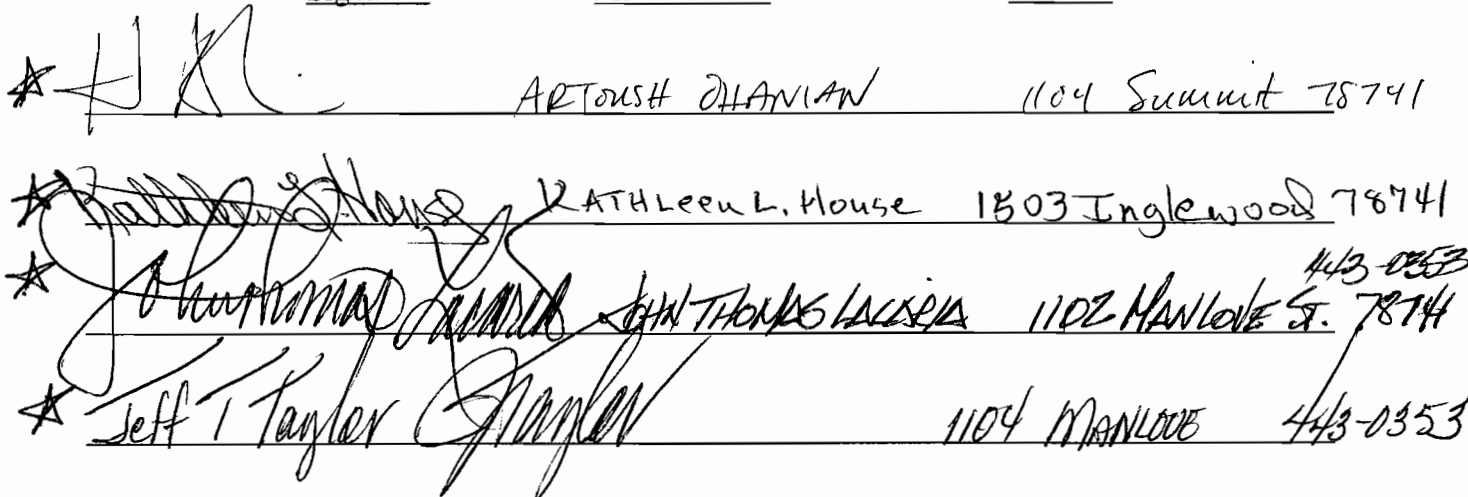 ARTOUSH OHANIAN 1104 Summit 78741
Kathleen L House KATHLeen L. House 1503 Inglewood 78741
443-0353
John Thomas JOHN THOMAS LACARIA 1102 MANLOVE ST. 78741
Jeff T Taylor JTaylor 1104 MANLOVE 443-0353